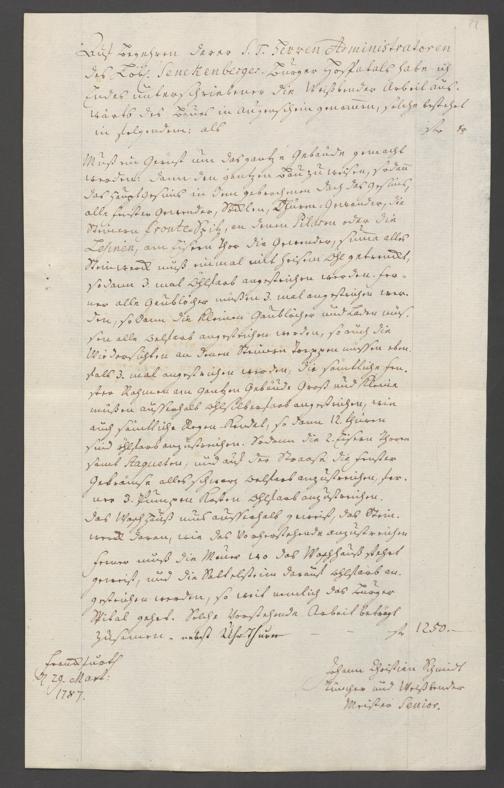 Auf Begehren derer S. T. Herren Administratoren
des Löbl. Senckenberger. Bürger Hospitals habe ich
Endes unterschriebener die Weißbender Arbeit aus-
wärts des Baues in Augenschein genommen, solche bestehet
in folgendem: als
Muß ein Gerüst um das gantze Gebäude gemacht
werden. dann den gantzen Bau zu weissen, sodann
das Hauptgesims in dem gebrochnen Dach das Gesims,
alle fenster Gewender, Thürn Gewender, die
Steinern fronte Spitz, an denen oder die
Lehnen, am Thor die Gewender, summa alles
Steinwerck muß einmal mit heisem Öhl getrenckt,
sodann 3. mal Öhlfarb angestrichen werden. fer-
ner alle Gaublöcher müssen 3. mal angestrichen wer-
den, so dann die kleinen Gaublöcher und Laden müs-
sen alle Oelfarb angestrichen werden, so auch die
an denen Steinern Treppen müssen eben-
falls 3. mal angestrichen werden. die sämtliche fen-
ster Rahmen am gantzen Gebäude Groß und kleine
müssen ausserhalb Öhlsilberfarb angestrichen, wie
auch sämtliche Regen so dann 12. thüren
sind öhlfarb anzustreichen. Sodann die 2. Thoren
samt Staqueten, und auf der Straase die fenster
Gerembse alles schwarz Oelfarb anzustreichen, fer-
ner 3. Pumpen Kasten Öhlfarb anzustreichen.
das Waschhauß muß ausserhalb geweist, das Stein-
werck daran, wie das Vorherstehende anzustreichen
ferner muß die Mauer wo das Waschhauß stehet
geweist, und die Sattelstein darauf öhlfarb an-
gestrichen werden, so weit nemlich das Bürger
Spital gehet. Solche Vorstehende Arbeit beträgt
zusamen. nebst Uhr Thurn – – f 1250.–
Franckfurth
d 29. Mart:
1787.
Johann Christian Schmidt
Tüncher und Weißbender
Meister Senior.